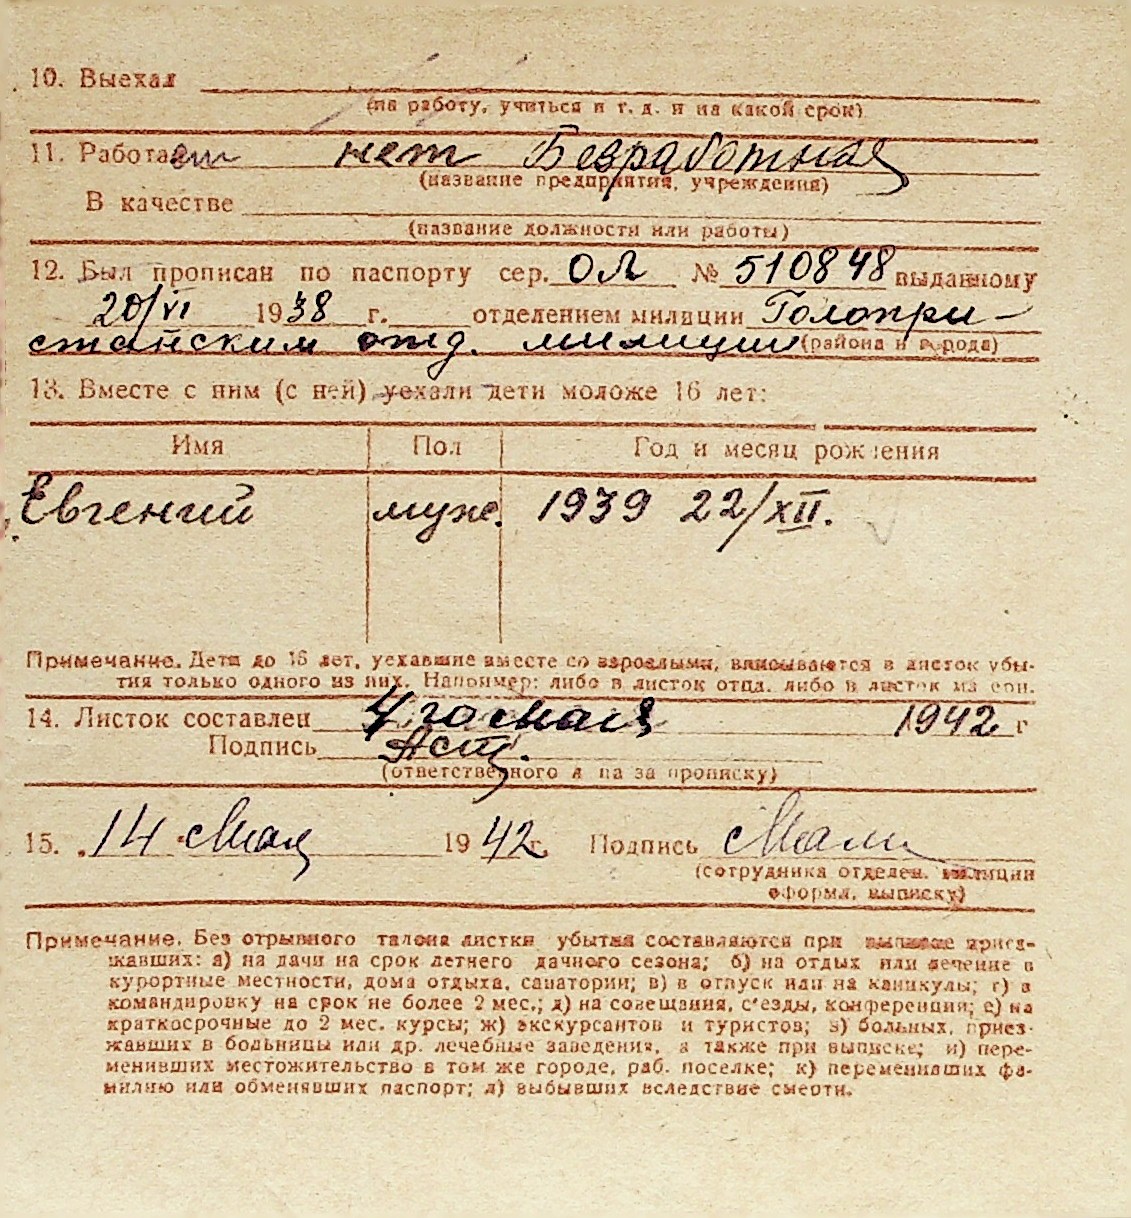 10. Выехал
(на работу, учиться и т. д. и на какой срок)
11. Работает нет Безработная
(название предприятия, учреждения)
В качестве
(название должности или работы)
12. Был прописан по паспорту сер. ОЛ № 510848 выданному
20/VI 1938 г. отделением милиции Голопри-
станским отд. милиции (района и города)
13. Вместе с ним (с ней) уехали дети моложе 16 лет:
Имя Пол Год и месяц рождения
Евгений муж. 1939 22/XII.
Примечание. Дети до 16 лет, уехавшие вместе со взрослыми, вписываются в листок убы-
тия только одного из них. Например: либо в листок отца, либо в листок матери.
14. Листок составлен 4 го Мая 1942 г
Подпись
(ответственного лица за прописку)
15. 14 Мая 1942 г. Подпись
(сотрудника отделен. милиции
оформл. выписку)
Примечание. Без отрывного талона листки убытия составляются при выписке приез-
жавших: а) на дачи на срок летнего дачного сезона; б) на отдых или лечение в
курортные местности, дома отдыха, санатории; в) в отпуск или на каникулы; г) в
командировку на срок не более 2 мес.; д) на совещания, с'езды, конференции; е) на
краткосрочные до 2 мес. курсы; ж) экскурсантов и туристов; з) больных, приез-
жавших в больницы или др. лечебные заведения, а также при выписке; и) пере-
менивших местожительство в том же городе, раб. поселке; к) переменивших фа-
милию или обменявших паспорт; л) выбывших вследствие смерти.